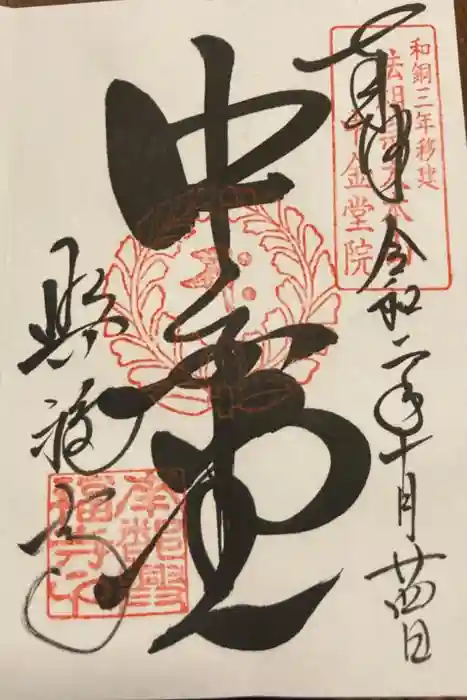 和銅三年移建
法相宗大本山
中金堂院
奉拝 令和二年十月廿四日
中金堂
興福寺